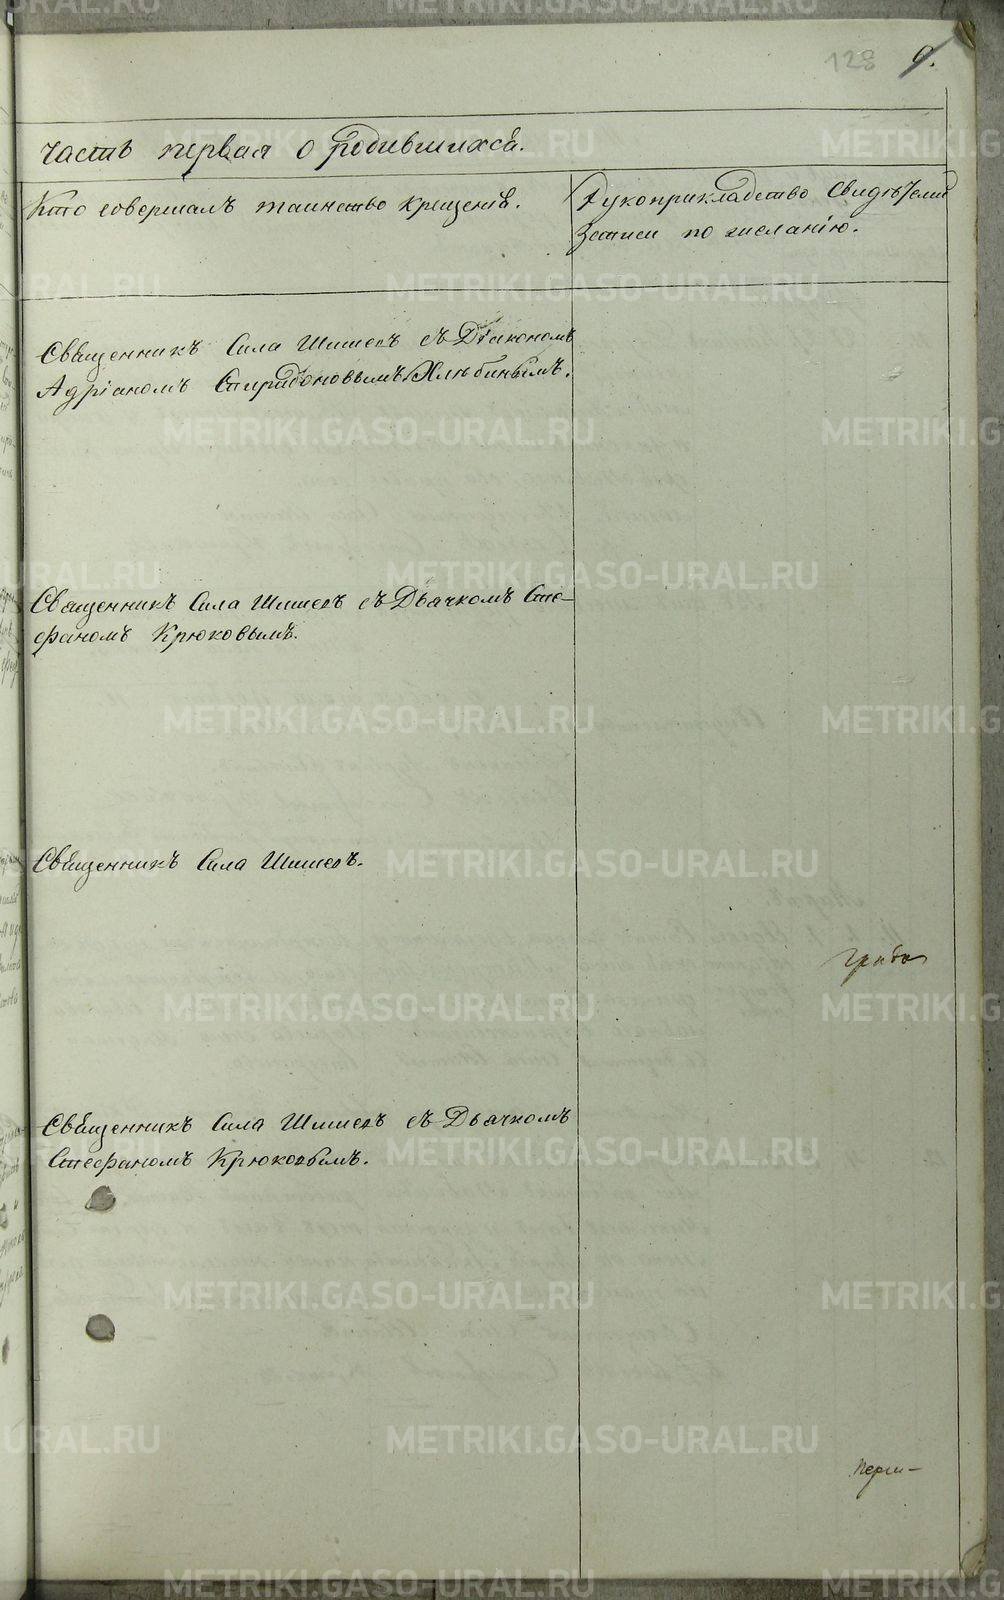 128 9.
Часть первая о родившихся.
Кто совершалъ таинство крещенія.
Рукоприкладство свидѣтелей
записи по желанію.
Священникъ Сила Шишевъ съ Діакономъ
Адріаномъ Спиридоновымъ Хлюбинымъ.
Священникъ Сила Шишевъ съ Дьячкомъ Сте-
фаномъ Крюковымъ.
Священникъ Сила Шишевъ.
Священникъ Сила Шишевъ съ Дьячкомъ
Стефаномъ Крюковымъ.
METRIKI.GASO-URAL.RU